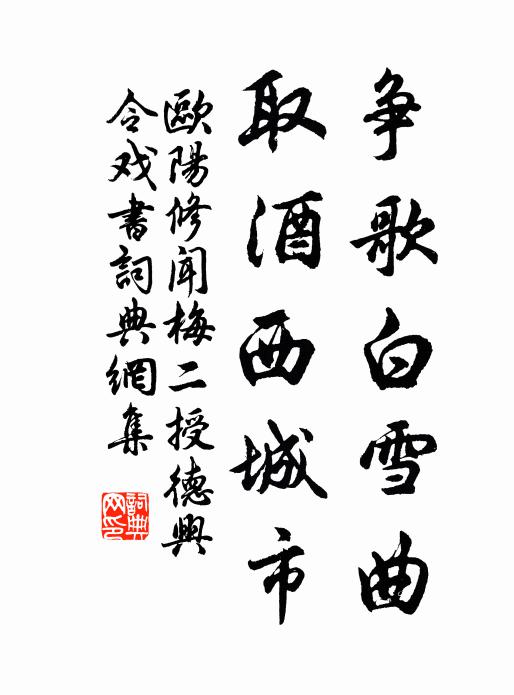 争歌白雪曲
取酒西城市
歐陽修聞梅二授德興
令戏書詞典網集
詞典
网印